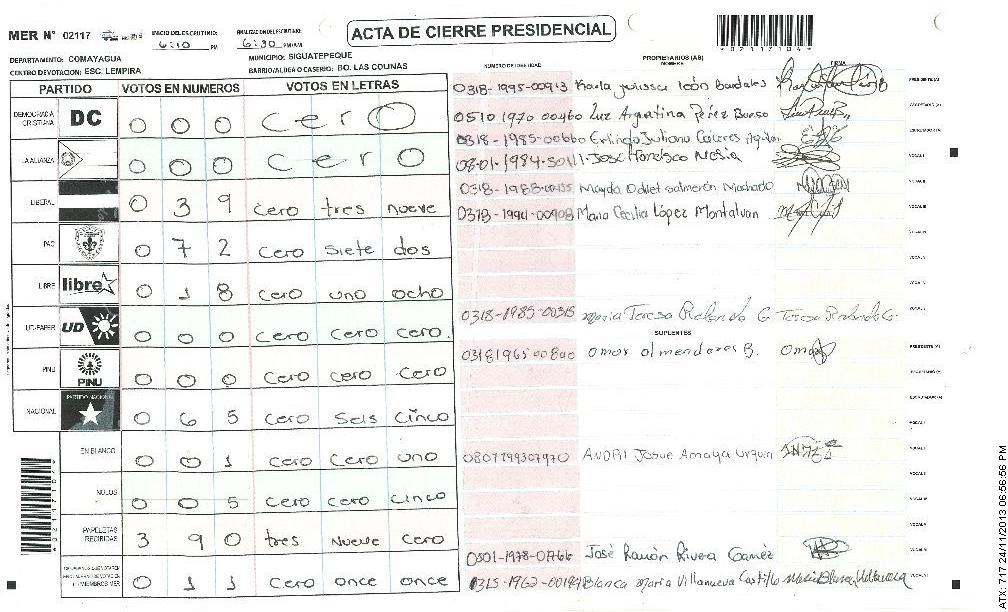 MER N° 02117
INICIO DEL ESCRUTINIO: 6:10 PM
FINALIZACION DEL ESCRUTINIO: 6:30 PM/AM
ACTA DE CIERRE PRESIDENCIAL
02117104
DEPARTAMENTO: COMAYAGUA
MUNICIPIO: SIGUATEPEQUE
CENTRO DE VOTACION: ESC. LEMPIRA
BARRIO/ALDEA O CASERIO: BO. LAS COLINAS
PARTIDO VOTOS EN NUMEROS VOTOS EN LETRAS
NUMERO DE IDENTIDAD PROPIETARIOS (AS) NOMBRE FIRMA
DEMOCRACIA CRISTIANA DC 0 0 0 cero
LA ALIANZA 0 0 0 cero
LIBERAL 0 3 9 cero tres nueve
PAC 0 7 2 cero siete dos
LIBRE libre 0 1 8 cero uno ocho
UD-FAPER UD 0 0 0 cero cero cero
PINU PINU 0 0 0 cero cero cero
NACIONAL PARTIDO NACIONAL 0 6 5 cero seis cinco
EN BLANCO 0 0 1 cero cero uno
NULOS 0 0 5 cero cero cinco
PAPELETAS RECIBIDAS 3 9 0 tres nueve cero
0 1 1 cero once once
0318-1995-00913 Karla Julissa León Bardales PRESIDENTE (A)
0510 1970 00460 Luz Argentina Pérez Bueso SECRETARIO (A)
0318-1985-00660 Juliana Cáceres
0801-1984-50111 José Francisco Mejia VOCAL I
0318-1988- Mayda Odilet Salmerón Machado VOCAL II
0318-1994-00908 Maria Cecilia López Montalvan VOCAL III
VOCAL IV
VOCAL V
0318-1985-00315 Maria Teresa Redondo G Teresa Redondo G.
SUPLENTES
0318 1965 00800 Omar almendares B. Omar PRESIDENTE (A)
SECRETARIO (A)
ESCRUTADOR (A)
VOCAL I
0807199307970 ANDRI Josue Amaya Urquia VOCAL II
0501-1978-01766 José Ramón Rivera Gaméz
0315-1962-00149 Blanca Maria Villanueva Castillo Maria Blanca Villanueva
ATX: 717 24/11/2013 06:56:56 PM